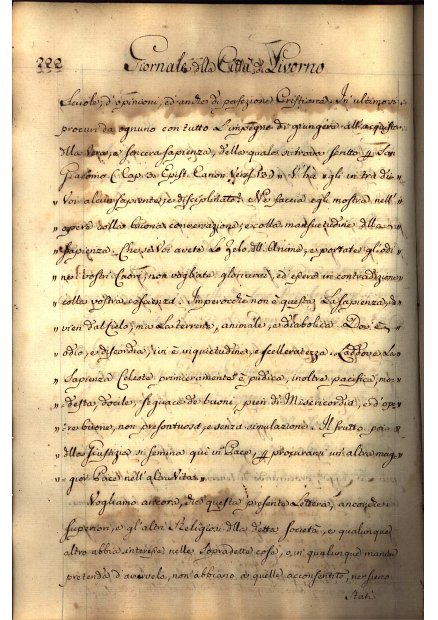 222 Giornale della Città di Livorno
Scuole, d'opinioni, ed anche di Cristiana. In ultimo si
procuri da ognuno con tutto l'impegno di giungere all'acquisto
della vera, e sincera sapienza, della quale si trova scritto San
Giacomo (Cap. 3. Epist. Canon. Vers. 13) V'ha egli in tra di
Voi alcun sapiente, e disciplinato? Ne faccia egli mostra nell'
opere colla buona conversazione, e colla mansuetudine della
sapienza. Che se Voi avete lo Zelo dell'Animo, e portate gli odi
ne' vostri Cuori, non vogliate gloriarvi, ed essere in contradizione
colla vostra coscienza. Imperocchè non è questa la sapienza, che
vien dal Cielo, ma la terrena, animale, e diabolica. Dov'è
odio, e discordia, ivi è inquietudine, e scelleratezza. Laddove la
Sapienza Celeste primieramente è pudica, inoltre pacifica, mo-
desta, docile, seguace de' buoni, pien di Misericordia, e d'ope-
re buone, non presontuosa, e senza simulazione. Il frutto poi
della Giustizia si semina quì in Pace, procurarsi un'altra mag-
gior Pace nell'altra Vita.
Vogliamo ancora, che questa presente Lettera, ancorchè i
Superiori, e gl'altri Religiosi della detta Società, e qualunque
altro abbia interesse nelle sopradette cose, o in qualunque maniera
pretenda d'avervelo, non abbiano a quelle acconsentito, ne sieno
stati